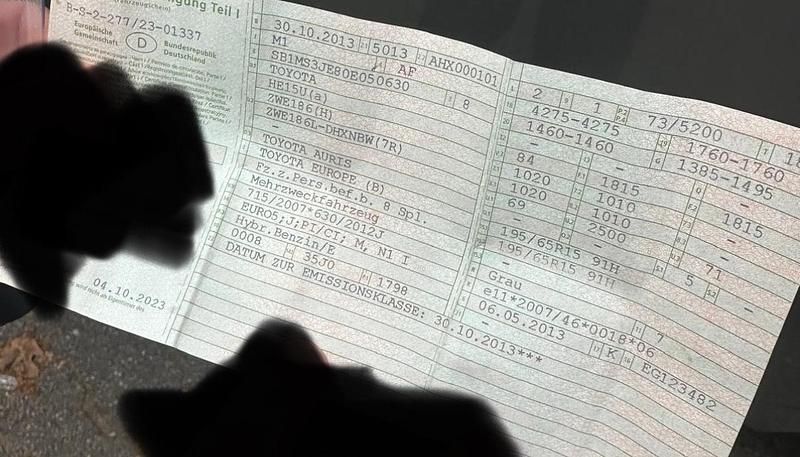 gung Teil I
(Fahrzeugschein)
B-S-2-277/23-01337
Europäische
Gemeinschaft
D
Bundesrepublik
Deutschland
04.10.2023
30.10.2013 5013 AHX000101
M1 AF
SB1MS3JE80E050630 8
TOYOTA
HE15U(a)
ZWE186(H)
ZWE186L-DHXNBW(7R)
–
TOYOTA AURIS
TOYOTA EUROPE (B)
Fz.z.Pers.bef.b. 8 Spl.
Mehrzweckfahrzeug
715/2007*630/2012J
EURO5;J;PI/CI; M, N1 I
Hybr.Benzin/E
0008 35J0 1798
DATUM ZUR EMISSIONSKLASSE: 30.10.2013***
2 1 73/5200
4275-4275 1760-1760
1460-1460 1385-1495
– – –
84 1815 1815
1020 1010 –
1020 1010 –
69 2500 71
– 5 –
195/65R15 91H
195/65R15 91H
–
Grau 7
e11*2007/46*0018*06
06.05.2013 K EG123482
–